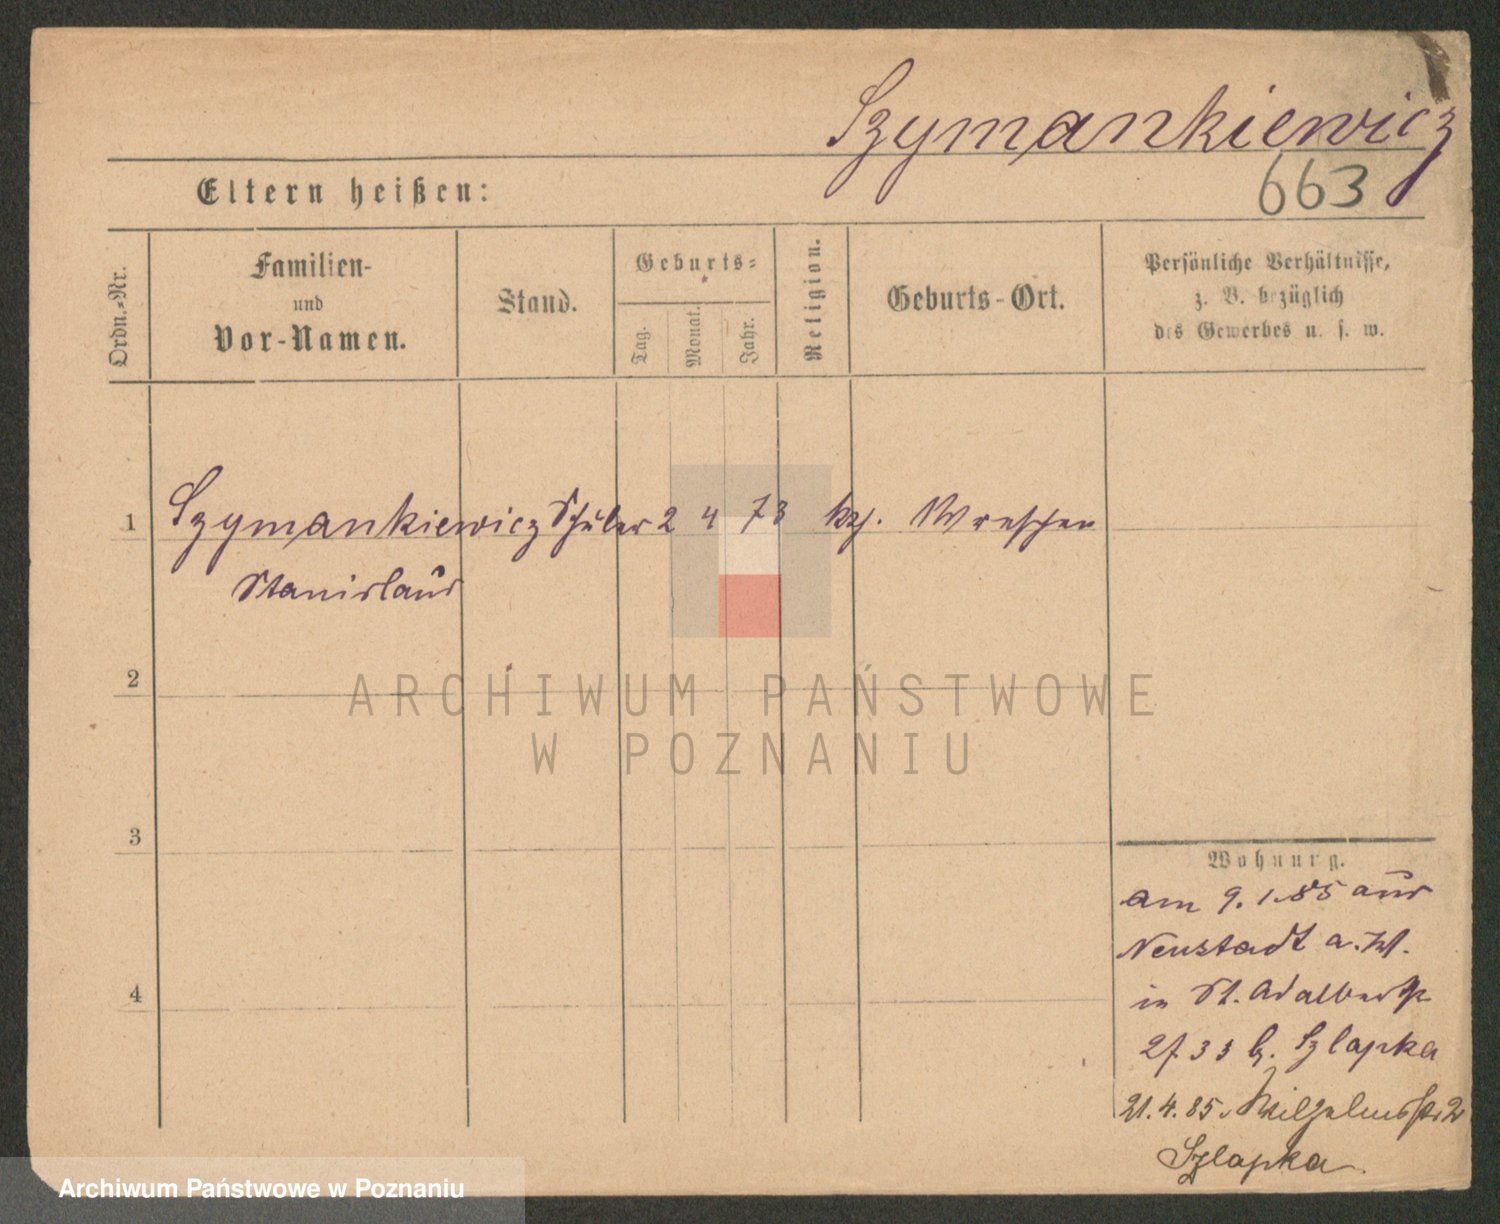 Szymankiewicz
663
Eltern heißen:
Ordn.-Nr.
Familien-
und
Vor-Namen.
Stand.
Geburts-
Tag.
Monat.
Jahr.
Religion.
Geburts-Ort.
Persönliche Verhältnisse,
z. B. bezüglich
des Gewerbes u. s. w.
1 Szymankiewicz Schüler 2 4 73 kth. Wreschen
Stanislaus
2
ARCHIWUM PAŃSTWOWE
W POZNANIU
3
Wohnung.
am 9. 1. 85 aus
Neustadt a. W.
4
in St. Adalbertstr
b. Szlapka
21. 4. 85. Wilhelmsstr 2
Szlapka
Archiwum Państwowe w Poznaniu